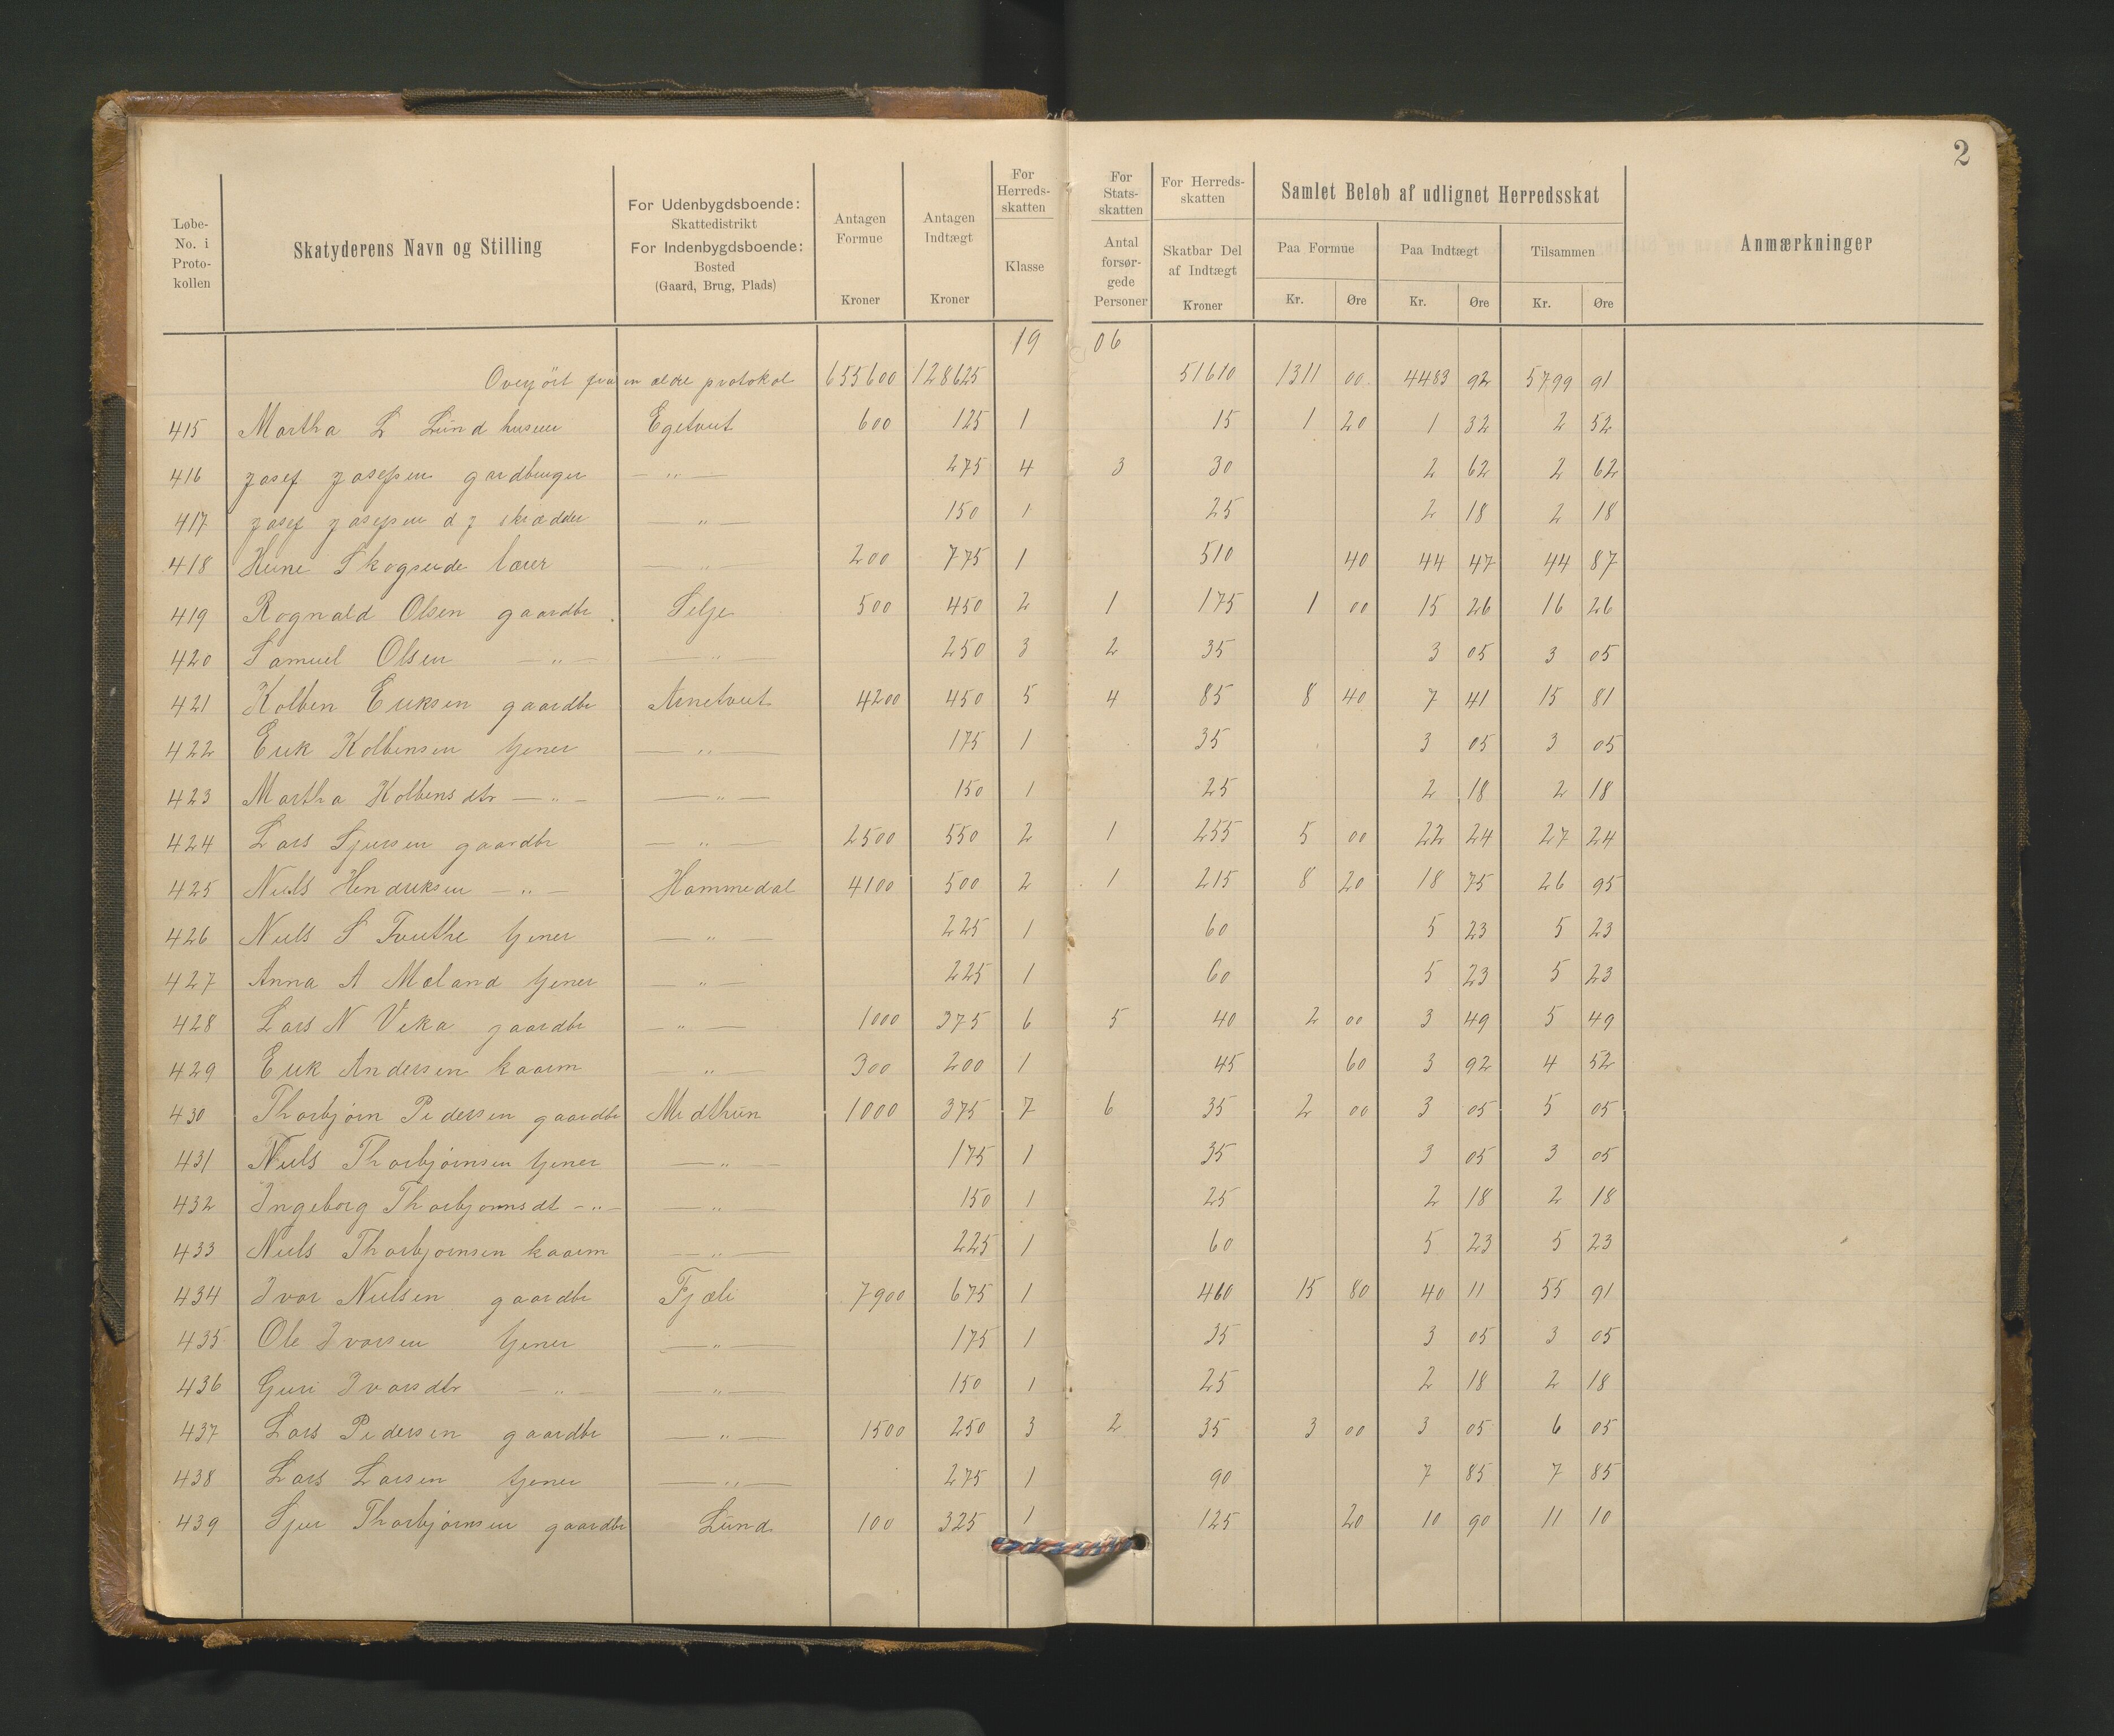 2
Løbe-No. i Protokollen | Skatyderens Navn og Stilling | For Udenbygdsboende: Skattedistrikt For Indenbygdsboende: Bosted (Gaard, Brug, Plads) | Antagen Formue Kroner | Antagen Indtægt Kroner | For Herredsskatten Klasse | For Statsskatten Antal forsørgede Personer | For Herredsskatten Skatbar Del af Indtægt Kroner | Samlet Beløb af udlignet Herredsskat | Anmærkninger
Paa Formue Kr. Øre | Paa Indtægt Kr. Øre | Tilsammen Kr. Øre
19 06
Overført fra en ældre protokol 655600 128625 51610 1311 00 4483 92 5799 91
415 Martha L Lund huseier Egetveit 600 125 1 15 1 20 1 32 2 52
416 Josef Josefsen gardbruger — „ — 275 4 3 30 2 62 2 62
417 Josef Josefsen d y skrædder — „ — 150 1 25 2 18 2 18
418 Skogseide lærer — „ — 200 775 1 510 40 44 47 44 87
419 Rognald Olsen gaardbr. Selje 500 450 2 1 175 1 00 15 26 16 26
420 Samuel Olsen — „ — — „ 250 3 2 35 3 05 3 05
421 Kolben Eriksen gaardbr Arnetveit 4200 450 5 4 85 8 40 7 41 15 81
422 Erik Kolbensen tjener — „ — 175 1 35 3 05 3 05
423 Martha Kolbensdtr — „ — — „ — 150 1 25 2 18 2 18
424 Lars Sjursen gaardbr — „ — 2500 550 2 1 255 5 00 22 24 27 24
425 Niels Hendriksen — „ — Hammedal 4100 500 2 1 215 8 20 18 75 26 95
426 Niels S Tveithe tjener — „ — 225 1 60 5 23 5 23
427 Anna A Mæland tjener — „ — 225 1 60 5 23 5 23
428 Lars N Veka gaardbr — „ — 1000 375 6 5 40 2 00 3 49 5 49
429 Erik Andersen kaarm — „ 300 200 1 45 60 3 92 4 52
430 Thorbjørn Pedersen gaardbr Medthun 1000 375 7 6 35 2 00 3 05 5 05
431 Niels Thorbjørnsen tjener — „ — 175 1 35 3 05 3 05
432 Ingeborg Thorbjørnsdt — „ — — „ — 150 1 25 2 18 2 18
433 Niels Thorbjørnsen kaarm — „ — 225 1 60 5 23 5 23
434 Ivar Nielsen gaardbr Fjæli 7900 675 1 460 15 80 40 11 55 91
435 Ole Ivarsen tjener — „ — 175 1 35 3 05 3 05
436 Guri Ivarsdtr — „ — — „ — 150 1 25 2 18 2 18
437 Lars Pedersen gaardbr — „ — 1500 250 3 2 35 3 00 3 05 6 05
438 Lars Larsen tjener — „ — 275 1 90 7 85 7 85
439 Sjur Thorbjørnsen gaardbr Lund 100 325 1 125 20 10 90 11 10